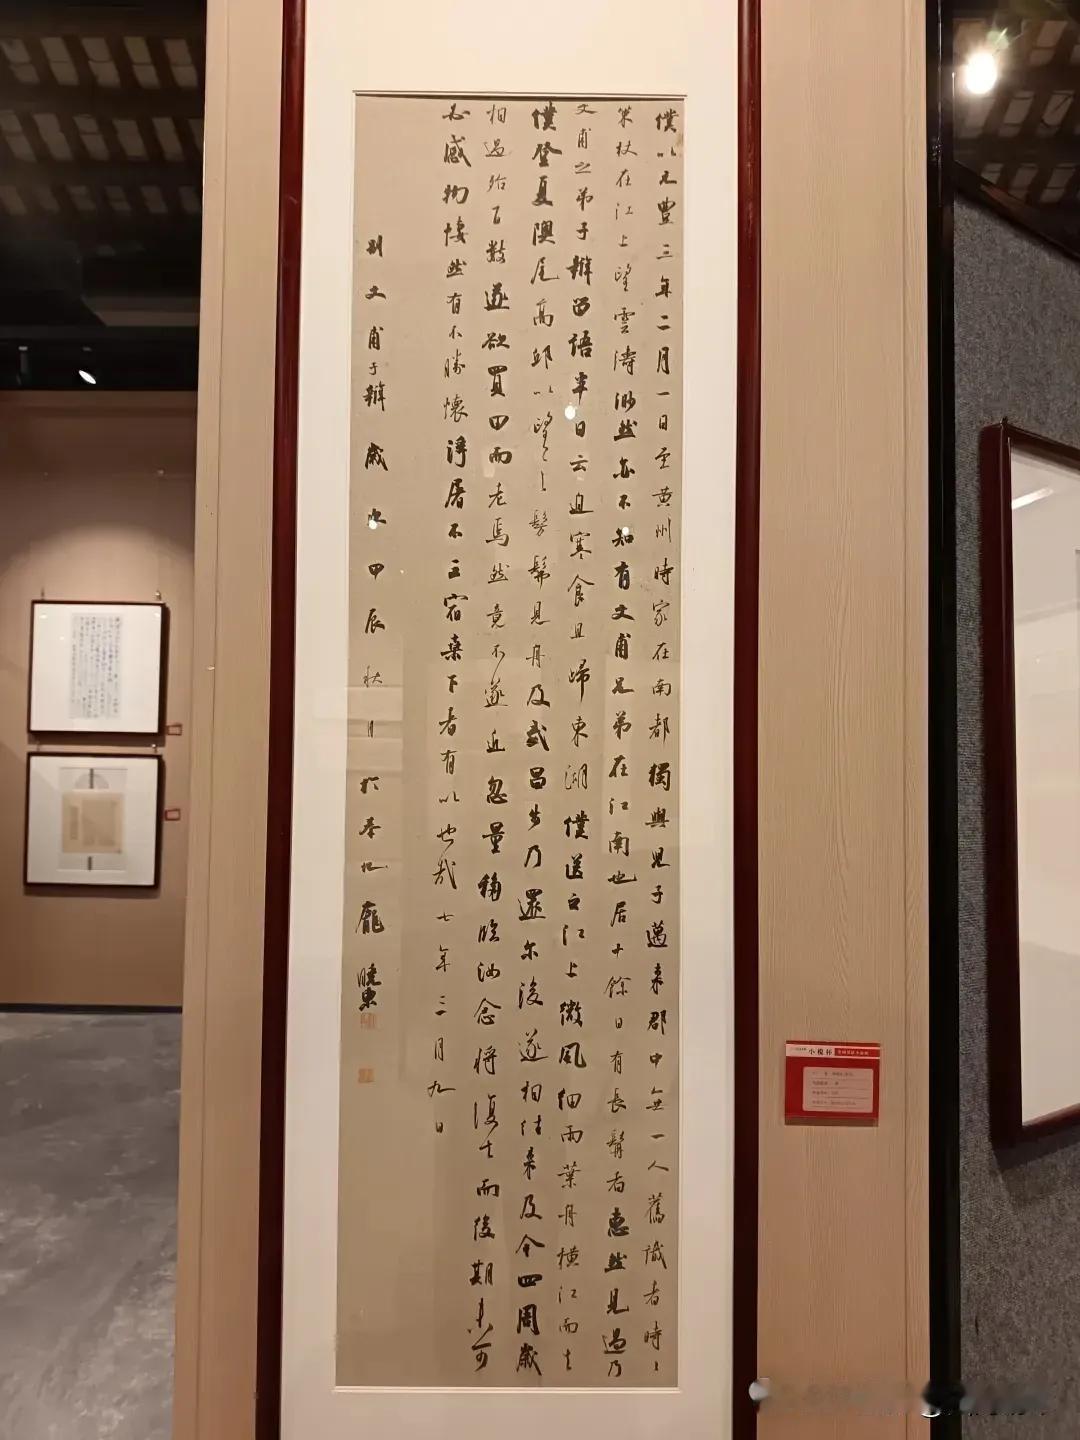 僕以元豐三年二月一日至黄州時家在南都獨與兒子邁来郡中無一人舊識者時〻
策杖在江上望雲濤渺然亦不知有文甫兄弟在江南也居十餘日有長髯者惠然見過乃
文甫之弟子辯留語半日云迫寒食且歸東湖僕送之江上微風細雨葉舟横江而去
僕登夏隩尾高邱以望〻之髣髴見舟及武昌步乃還尔後遂相往来及今四周歲
相過殆百數遂欲買田而老焉然竟不遂近忽量移臨汝念将復去而後期未可
必感物悽然有不勝懷浮屠不三宿桒下者有以也哉七年三月九日
別文甫子辯 歲次甲辰秋月於 龐曉東
小楷杯